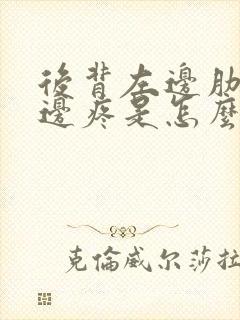 後背左邊肋
邊疼是怎麼
克倫威尔莎拉